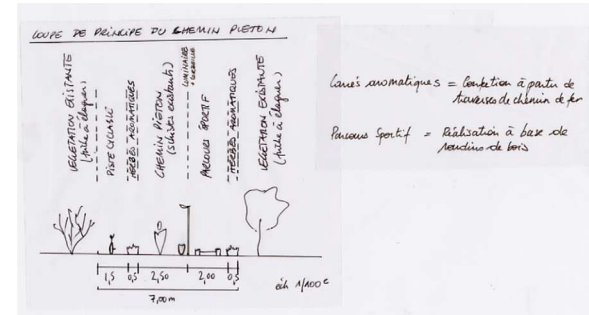 COUPE DE PRINCIPE DU CHEMIN PIETON
VEGETATION EXISTANTE
(taille à élaguer)
PISTE CYCLABLE
HERBES AROMATIQUES
CHEMIN PIÉTON
(schistes existants)
LUMINAIRE
PARCOURS SPORTIF
HERBES AROMATIQUES
VEGETATION EXISTANTE
(taille à élaguer)
1,5
0,5
2,50
2,00
0,5
7,00m
éch 1/100e
Carrés aromatiques = Confection à partir de
traverses de chemin de fer
Parcours Sportif = Réalisation à base de
rondins de bois